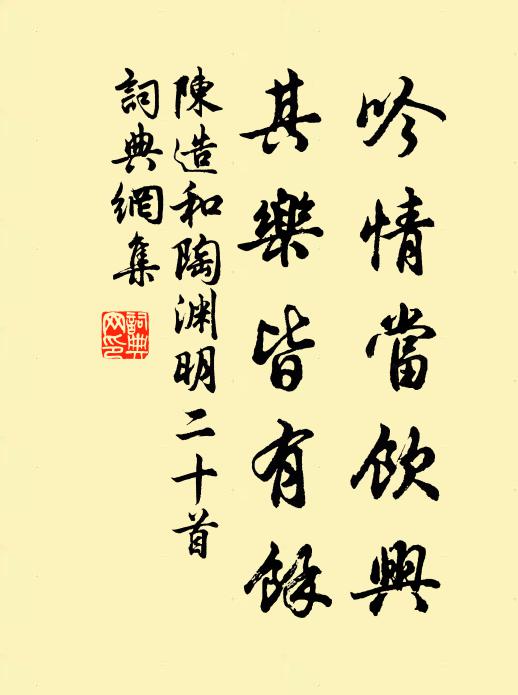 吟情當飲興
其樂皆有餘
陳造和陶淵明二十首
詞典網集
詞典網印